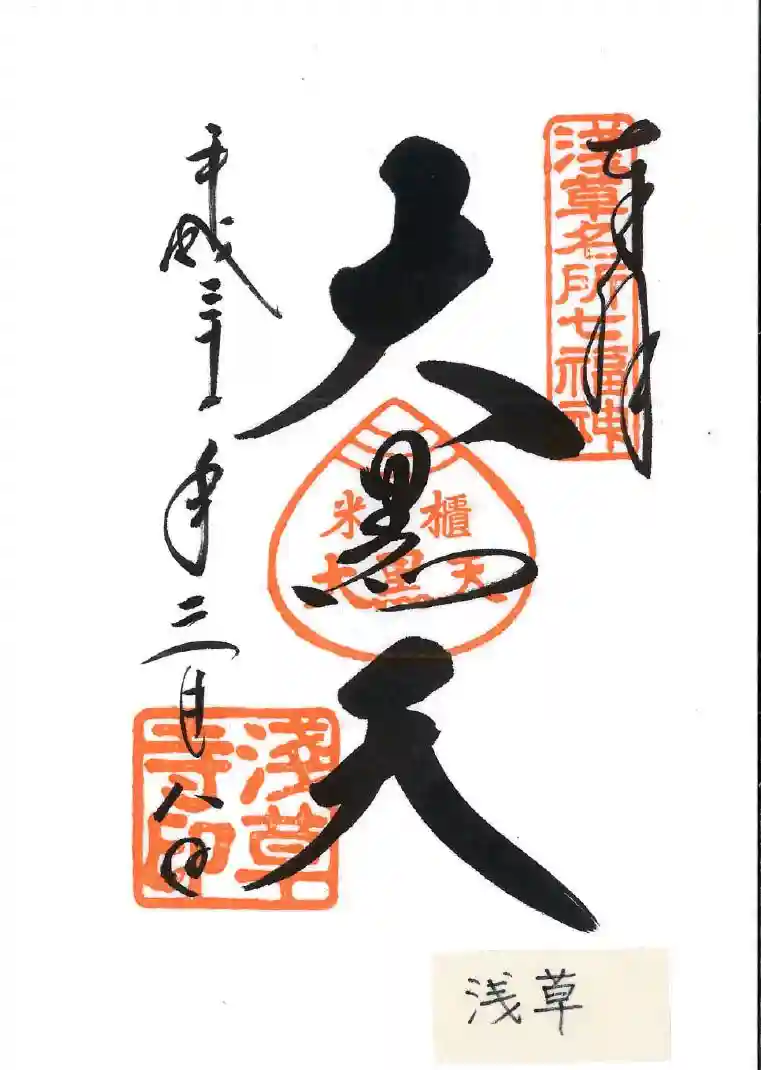 奉拝
浅草名所七福神
大黒天
米櫃
大黒天
平成三十一年三月八日
淺草寺印
浅草